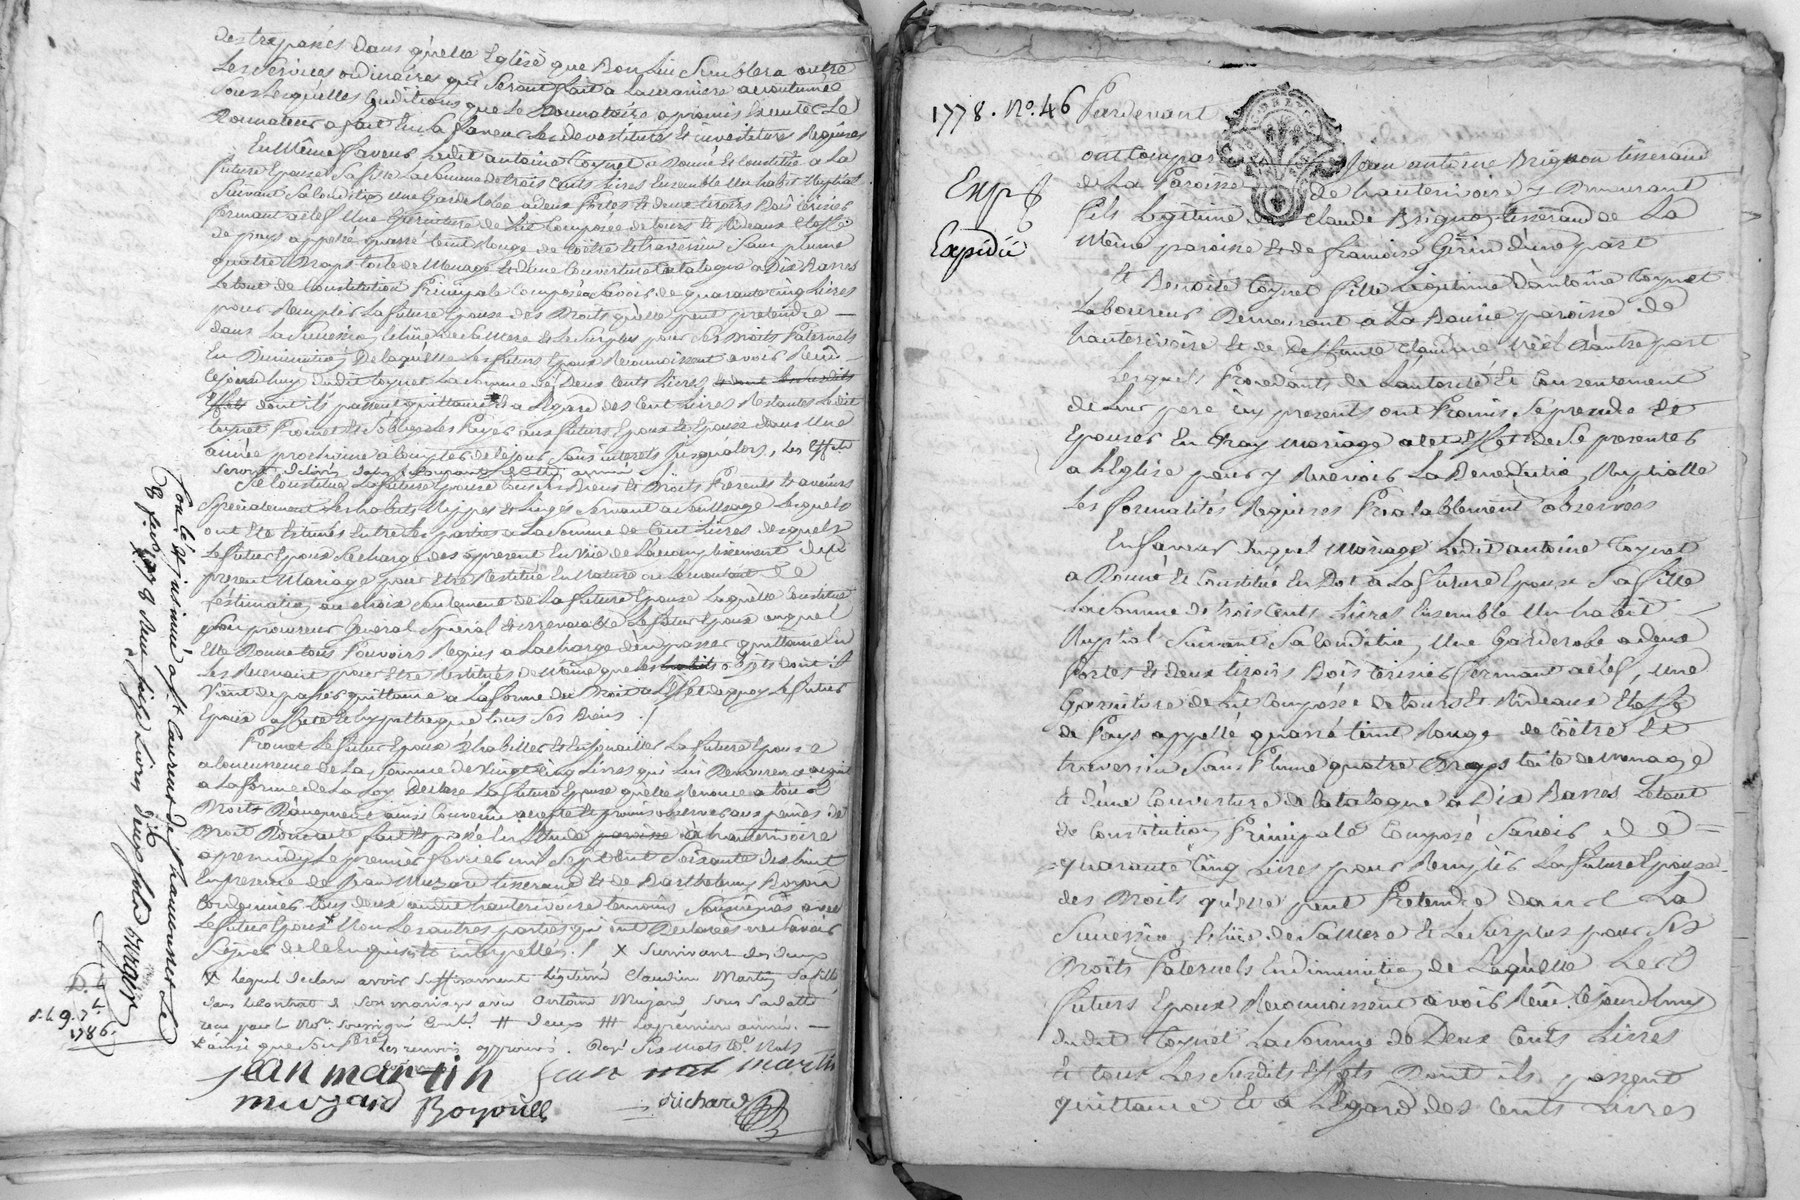 des trepassés dans qu'elle Eglise que Bon lui Semblera outre
Les Services ordinaires qui Seront fait a La maniere accoutumée
Sous Lesquelles Conditions que Le Donnataire a promis Executer Le
Donnateur a fait En Sa faveur Les devestitures Et investitures Requises
En Même faveur Ledit antoine Coynet a Donné Et Constitué a La
future Epouse Sa fille La somme de trois Cents Livres Ensemble Un habit Nuptial
Suivant Sa Condition Une Garderobe a deux Portes Et deux tiroirs Bois Cerisier
fermant a clef Une Garniture de Lit Composée de tours Et Rideaux Etoffe
de pays appellé quarré teint Rouge de Coëtre Et traversin Sans plume
quatre Draps toile de Menage Et d'une Couverture Catalogne a Dix Barres
Le tout de Constitution Principale Composée Savoir de quarante Cinq Livres
pour Remplir La future Epouse des Droits qu'elle peut pretendre
dans La Succession de Sa Mere Et Le Surplus pour Ses Droits Paternels
En Diminution De laquelle Les futurs Epoux Reconnoissent avoir Reçu
Cejourdhuy dudit Coynet La somme de Deux Cents Livres
Effets dont ils passent quittance Et a L'Egard des Cent Livres Restantes Ledit
Coynet Promet Et S'oblige Les Payer aux futurs Epoux Et Epouse dans Une
année prochaine a Compter de Ce jour Sans interets jusqu'alors, Les Effets
Seront delivrés dans Le Courant de Cette année
Se Constitue La future Epouse tous Ses Biens Et Droits Presents Et avenirs
Specialement Les habits Nippes Et Linges Servant a Son Usage Lesquels
ont Eté Estimés Entre Les parties a La Somme de Cent Livres desquels
Le futur Epoux Se charge des apresent En Vüe de L'accomplissement dud
present Mariage pour Etre Restitué En Nature ou Le montant de
L'estimation au choix Seulement de La future Epouse Laquelle Constitue
pour procureur General Special Et irrevocable Le futur Epoux auquel
Elle Donne tous Pouvoirs Requis a La charge d'en passer quittance En
Les Recevant pour Etre Restitués de Même que Les habits objets dont il
Vient de passer quittance a La forme du Droit a L'Effet de quoy Le futur
Epoux affecte Et hypotheque tous Ses Biens
Promet Le futur Epoux d'habiller Et Enjouailler La future Epouse
a Concurrence de La Somme de Vingt Cinq Livres qui Lui Demeurera acquis
a La forme de La Loy Declare La future Epouse qu'elle Renonce a tous
Droits ainsi Convenu accepté Et promis observer aux peines de
Droit Dont acte fait Et passé En L'Etude paroisse d'hauterivoire
apresmidy Le premier fevrier mil Sept Cent Soixante dix huit
En presence de Jean Muzard tisserand Et de Barthelemy Boyoud
Cordonnier tous deux audit hauterivoire temoins Soussignés avec
Le futur Epoux Non Les autres parties qui ont Declarées ne Savoir
Signer de Ce Enquis Et interpellés / X Survivant des deux
X Lequel declare avoir Suffisamment Legitimé Claudine Martin Sa fille
dans Le Contrat de Son mariage avec Antoine Muzard Sous Sa datte
reçu par Le Nore Soussigné Contlé # deux ## La premiere année.
X ainsi que Son frere Les renvois approuvés. Rayé Six mots Nuls
jean martin
muzard Boyoud
Richard
Controlé Et insinué a St Laurent de Chamousset Le
8 fevrier 1778 Reçu Seize Livres
D. L.
d. L. 9. 7.
1786.
1778. No. 46
Exp
Expedié
Pardevant
ont Comparu Jean antoine Brignon tisserand
de La Paroisse de hauterivoire y Demeurant
fils Legitime de Claude Brignon tisserand de La
Même paroisse Et de françoise Gerin d'une part
Et Benoite Coynet fille Legitime d'antoine Coynet
Laboureur Demeurant a La Bourie paroisse de
hauterivoire Et de deffunte Claudine Viel d'autre part
Lesquels Procedants de L'autorité Et Consentement
de Leur pere icy presents ont Promis Se prendre Et
Epouser En Vray Mariage a Cet Effet de Se presenter
a L'Eglise pour y Recevoir La Benediction Nuptialle
Les formalités Requises Prealablement observées
En faveur duquel Mariage Ledit antoine Coynet
a Donné Et Constitué En Dot a La future Epouse Sa fille
La Somme de trois Cents Livres Ensemble Un habit
Nuptial Suivant Sa Condition, Une Garderobe a deux
Portes Et deux tiroirs Bois Cerisier fermant a clef, Une
Garniture de Lit Composée de tours Et Rideaux Etoffe
de Pays appellé quarré teint Rouge de Coëtre Et
traversin Sans Plume quatre Draps toile de Menage
Et d'une Couverture de Catalogne a Dix Barres Le tout
de Constitution Principale Composé Savoir de
quarante Cinq Livres pour Remplir La future Epouse
des Droits qu'elle peut Pretendre dans La
Succession de Sa Mere Et Le Surplus pour Ses
Droits Paternels En diminution de Laquelle Les
futurs Epoux Reconnoissent avoir Reçu Cejourdhuy
dudit Coynet La Somme de Deux Cents Livres
Et tous Les Susdits Effets Dont ils passent
quittance Et a L'Egard des Cents Livres